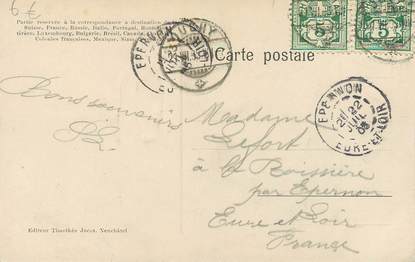 6 €
Partie réservée à la correspondance à destination de
Suisse, France, Russie, Italie, Portugal, Roum
Grèce, Luxembourg, Bulgarie, Brésil,
Colonies françaises, Mexique,
Carte postale
5 5
EPERNON
EPERNON
22
EURE-ET-LOIR
Bons souvenirs
Madame
Lefort
à la Boissière
par Epernon
Eure et Loir
France
Editeur Timothée Jacot, Neuchâtel